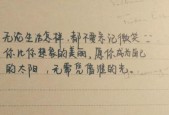 无论生活怎样,都不要忘记微笑::
你比你想象的美丽。愿你成为自己
的太阳,无需凭借谁的光。